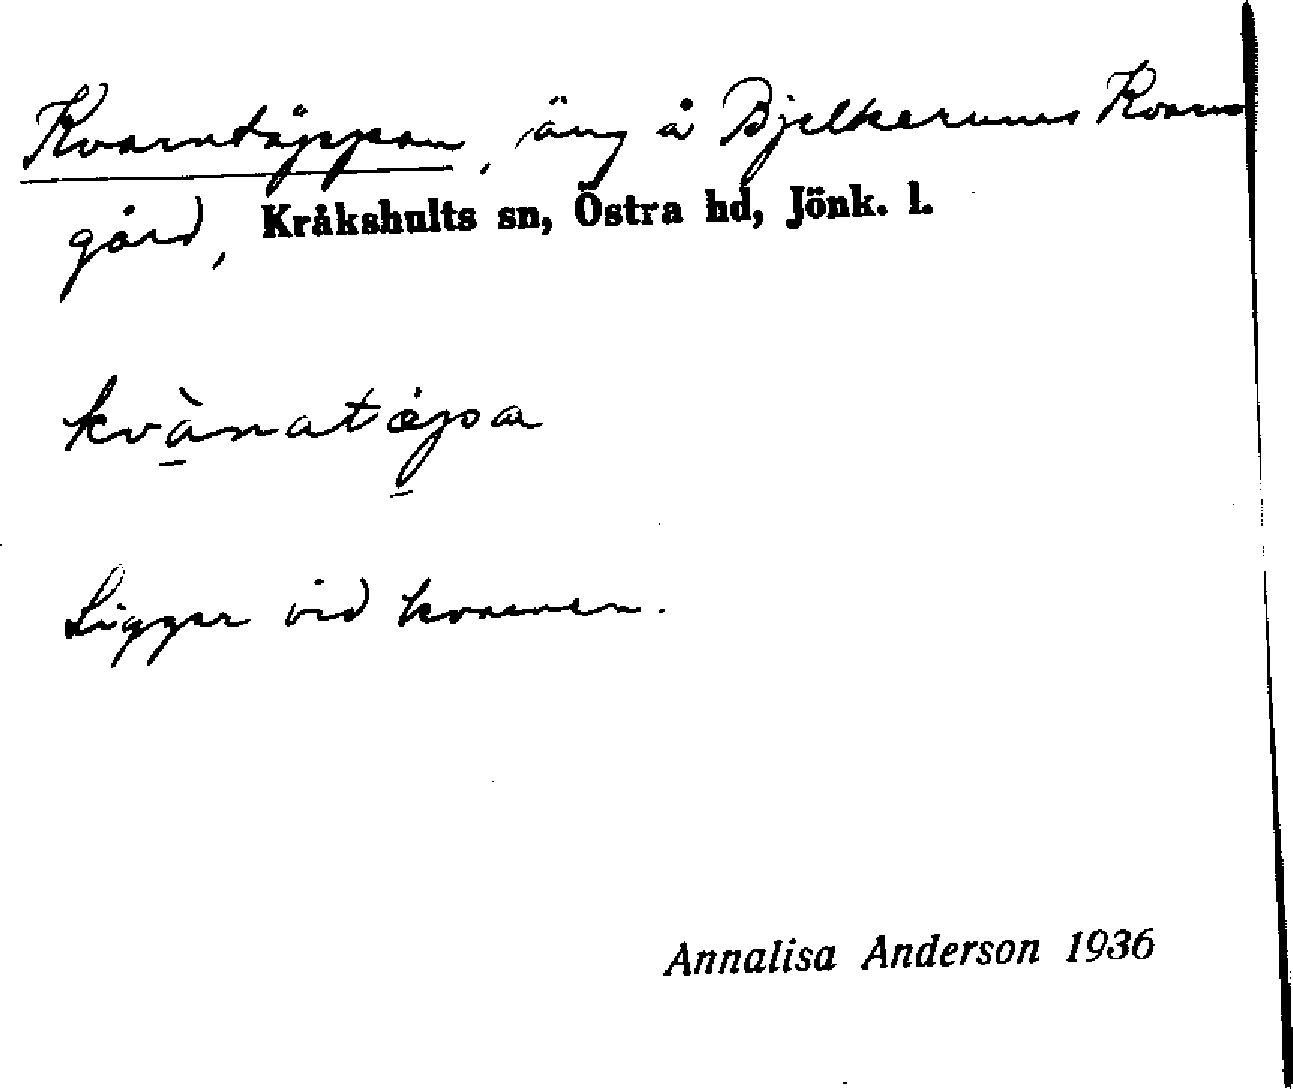 Kvarntäppan, äng å Bjelkerums Kvarn
gård, Kråkshults sn, Östra hd, Jönk. l.
kvànatæ̀pa
Ligger vid kvarnen.
Annalisa Anderson 1936